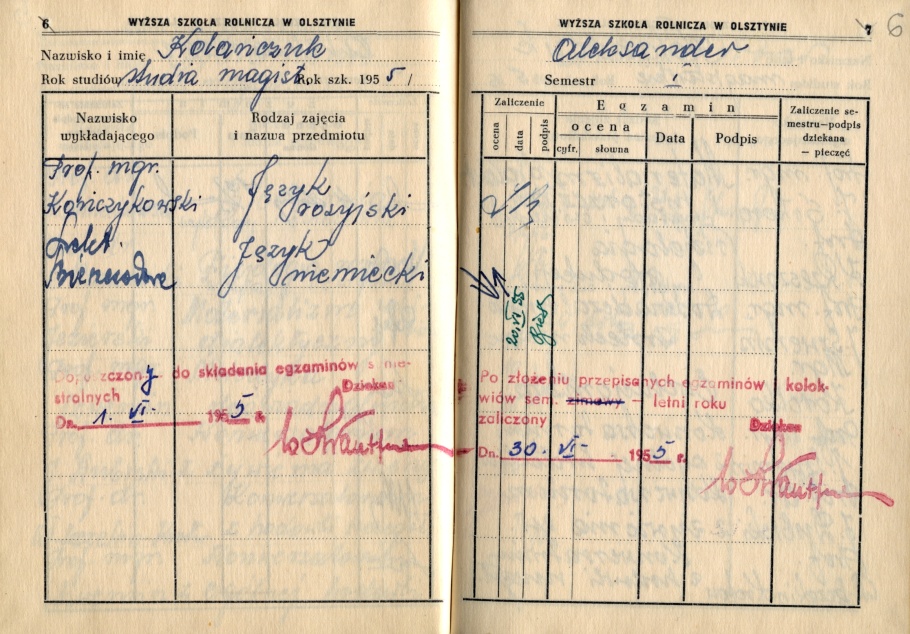 6
WYŻSZA SZKOŁA ROLNICZA W OLSZTYNIE
Nazwisko i imię Kolańczuk
Rok studiów studia magist. Rok szk. 195 5 /
Nazwisko wykładającego
Rodzaj zajęcia i nazwa przedmiotu
Prof. mgr.
Kończykowski
Język rosyjski
Lekt.
Język niemiecki
Dopuszczony do składania egzaminów s me-
stralnych
Dziekan
Dn. 1. VI. 195 5 r.
WYŻSZA SZKOŁA ROLNICZA W OLSZTYNIE
7
6
Aleksander
Semestr II
Zaliczenie
ocena
data
podpis
Egzamin
ocena
cyfr.
słowna
Data
Podpis
Zaliczenie se-
mestru–podpis
dziekana
– pieczęć
VI 55
Po złożeniu przepisanych egzaminów i kolok-
wiów sem. zimowy – letni roku
zaliczony
Dziekan
Dn. 30. VI. 195 5 r.